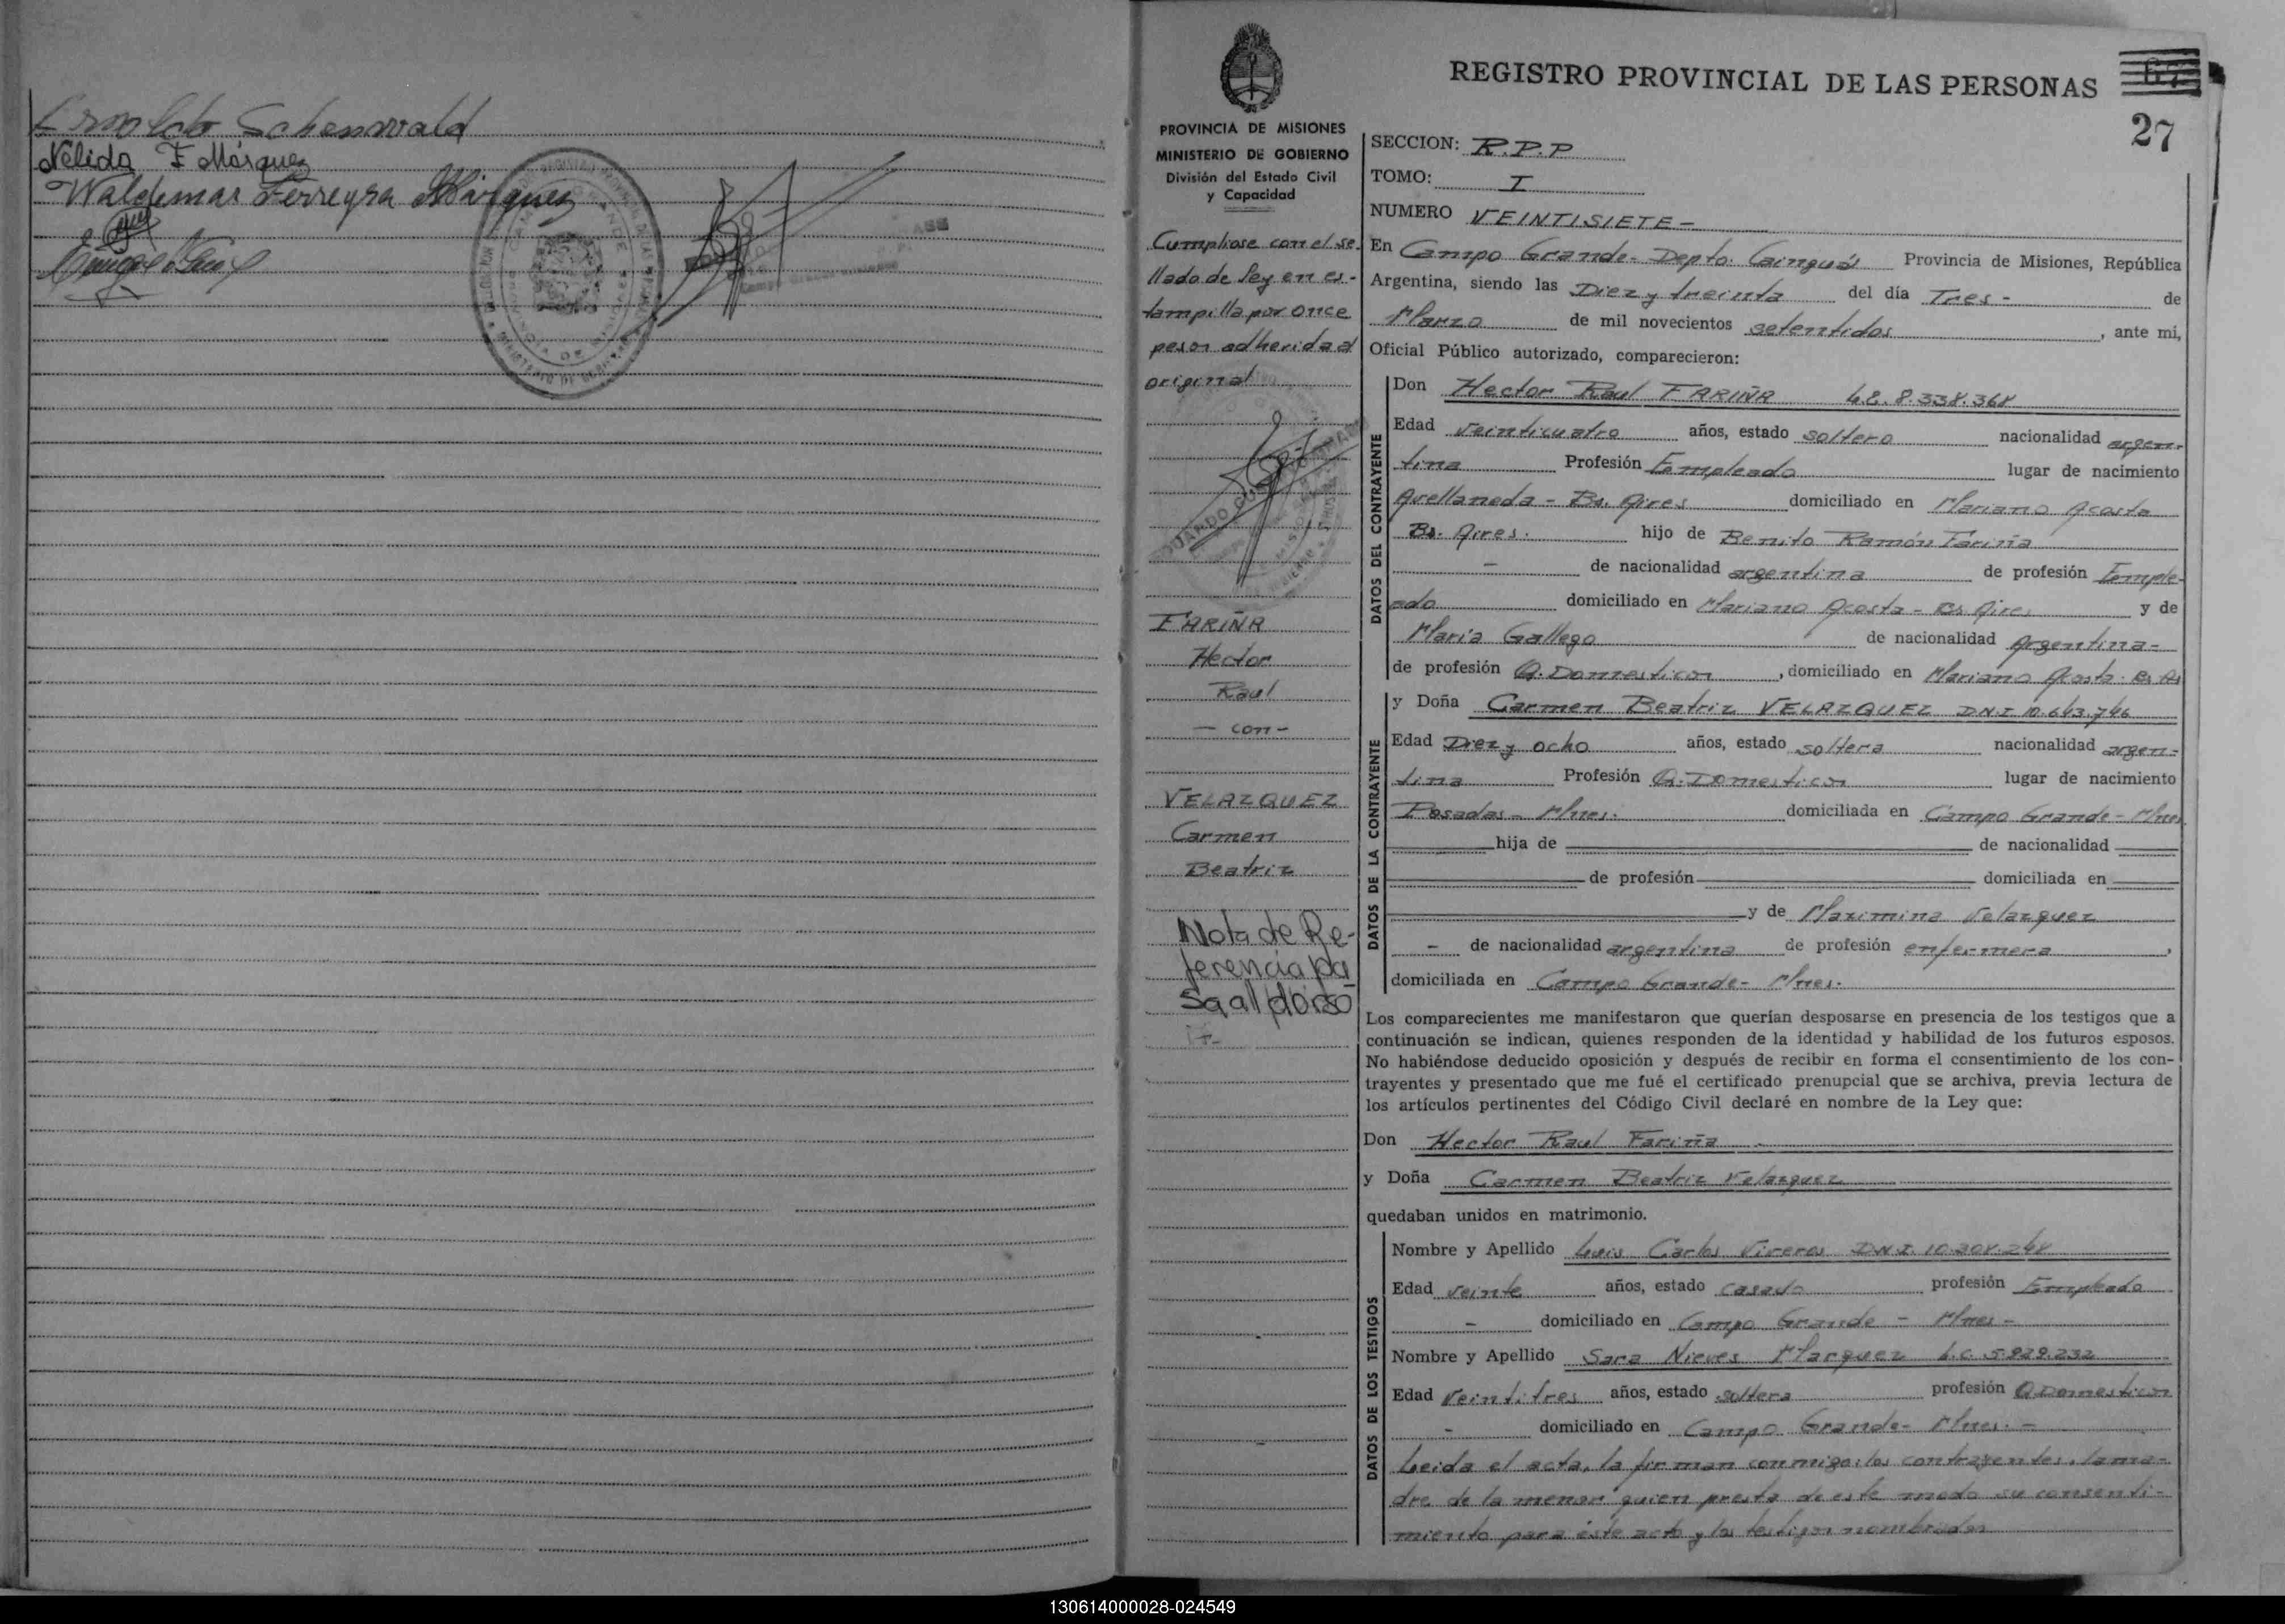 Arnoldo Schenwald
Nélida F Márquez
Waldemar Ferreyra Márquez
REGISTRO PROVINCIAL DE LAS PERSONAS
27
PROVINCIA DE MISIONES
MINISTERIO DE GOBIERNO
División del Estado Civil
y Capacidad
Cumpliose con el se-
llado de ley en es-
tampilla por once
pesos adherida al
original
FARIÑA
Hector
Raul
- con -
VELAZQUEZ
Carmen
Beatriz
Nota de Re-
ferencia pa
sa al dorso
SECCION: R.P.P
TOMO: I
NUMERO VEINTISIETE -
En Campo Grande - Depto. Cainguás Provincia de Misiones, República
Argentina, siendo las Diez y treinta del día Tres - de
Marzo de mil novecientos setentidos, ante mi,
Oficial Público autorizado, comparecieron:
DATOS DEL CONTRAYENTE
Don Hector Raul FARIÑA L.E. 8.338.368
Edad veinticuatro años, estado soltero nacionalidad argen-
tina Profesión Empleado lugar de nacimiento
Avellaneda - Bs. Aires domiciliado en Mariano Acosta
Bs. Aires. hijo de Benito Ramón Fariña
- de nacionalidad argentina de profesión Emple-
ado domiciliado en Mariano Acosta - Bs Aires y de
Maria Gallego de nacionalidad Argentina -
de profesión Q. Domesticos, domiciliado en Mariano Acosta. Bs As
DATOS DE LA CONTRAYENTE
y Doña Carmen Beatriz VELAZQUEZ DNI 10.643.746
Edad Diez y ocho años, estado soltera nacionalidad argen-
tina Profesión Q. Domesticos lugar de nacimiento
Posadas - Mnes. domiciliada en Campo Grande - Mnes
hija de de nacionalidad
de profesión domiciliada en
y de Maximina Velazquez
- de nacionalidad argentina de profesión enfermera,
domiciliada en Campo Grande - Mnes.
Los comparecientes me manifestaron que querían desposarse en presencia de los testigos que a
continuación se indican, quienes responden de la identidad y habilidad de los futuros esposos.
No habiéndose deducido oposición y después de recibir en forma el consentimiento de los con-
trayentes y presentado que me fué el certificado prenupcial que se archiva, previa lectura de
los artículos pertinentes del Código Civil declaré en nombre de la Ley que:
Don Hector Raul Fariña
y Doña Carmen Beatriz Velazquez
quedaban unidos en matrimonio.
DATOS DE LOS TESTIGOS
Nombre y Apellido Luis Carlos Viveros D.N.I. 10.208.248
Edad veinte años, estado casado profesión Empleado
- domiciliado en Campo Grande - Mnes -
Nombre y Apellido Sara Nieves Marquez L.C. 5.929.232
Edad Veintitres años, estado soltera profesión Q. Domesticos
- domiciliado en Campo Grande - Mnes. -
Leida el acta, la firman conmigo: los contrayentes, la ma-
dre de la menor quien presta de este modo su consenti-
miento para éste acto y los testigos nombrados
130614000028-024549